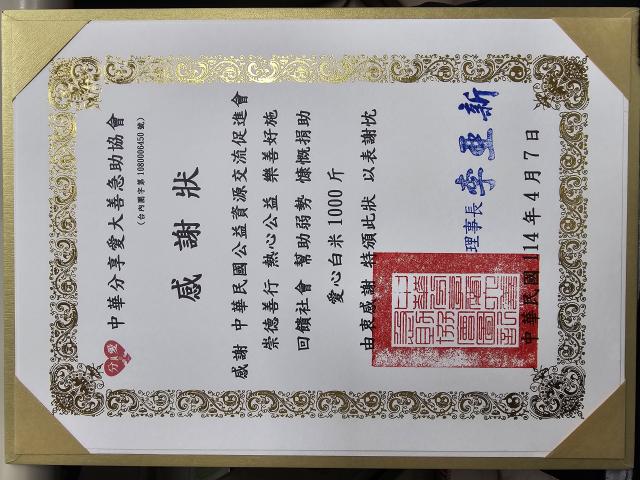 中華分享愛大善急助協會
(台內團字第 1080006450 號)
感謝狀
感謝 中華民國公益資源交流促進會
崇德善行 熱心公益 樂善好施
回饋社會 幫助弱勢 慷慨捐助
愛心白米 1000 斤
由衷感謝 特頒此狀 以表謝忱
理事長 李亞新
中華民國 114 年 4 月 7 日